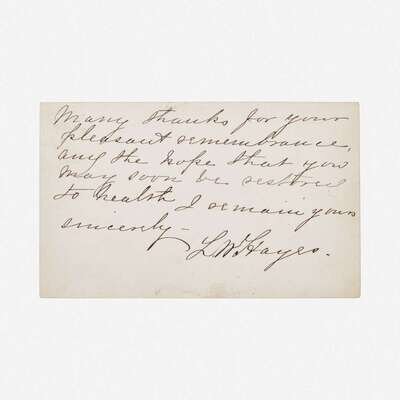 Many thanks for your
pleasant remembrance,
and the hope that you
may soon be restored
to health I remain yours
sincerely -
L. W. Hayes.